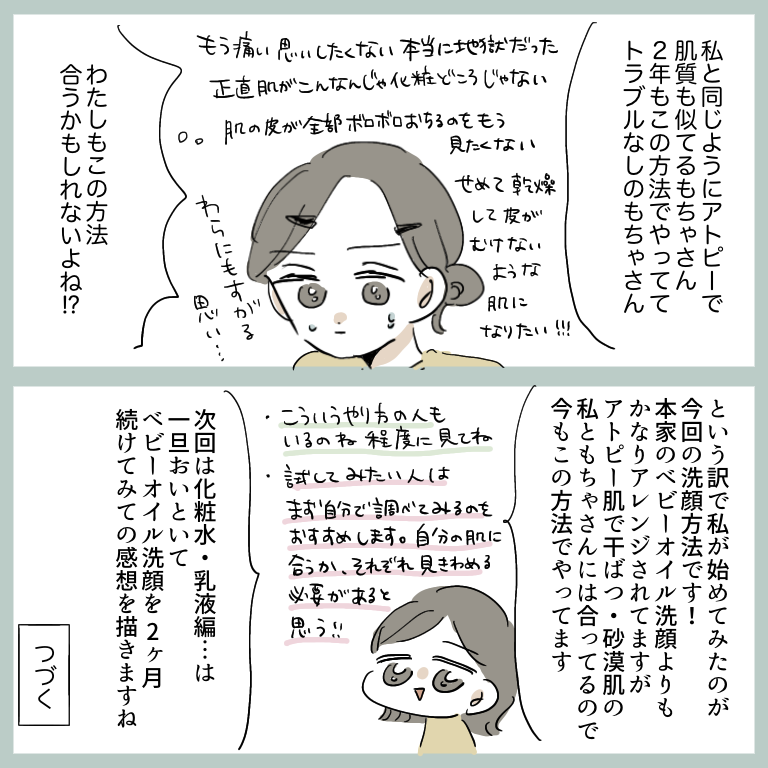 私と同じようにアトピーで
肌質も似てるもちゃさん
2年もこの方法でやってて
トラブルなしのもちゃさん
もう痛い思いしたくない本当に地獄だった
正直肌がこんなんじゃ化粧どころじゃない
肌の皮が全部ボロボロおちるのをもう
見たくない
せめて乾燥
して皮が
むけない
ような
肌に
なりたい!!!
わらにもすがる
思い…
わたしもこの方法
合うかもしれないよね!?
という訳で私が始めてみたのが
今回の洗顔方法です！
本家のベビーオイル洗顔よりも
かなりアレンジされてますが
アトピー肌で干ばつ・砂漠肌の
私ともちゃさんには合ってるので
今もこの方法でやってます
・こういうやり方の人も
いるのね 程度に見てね
・試してみたい人は
まず自分で調べてみるのを
おすすめします。自分の肌に
合うか、それぞれ見きわめる
必要があると
思う!!
次回は化粧水・乳液編…は
一旦おいといて
ベビーオイル洗顔を2ヶ月
続けてみての感想を描きますね
つづく